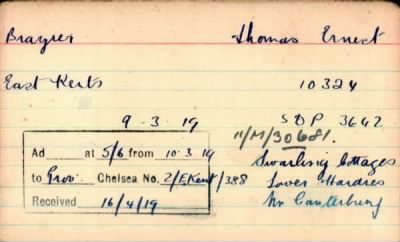 Brayzier Thomas Ernest
East Kents 10324
9.3.19 SDP 3642
11/M/30681.
Ad at 5/6 from 10.3.19
to Prov. Chelsea No. 2/E.Kent/388
Received 16/4/19
Swarling Cottages
Lower Hardres
Nr Canterbury